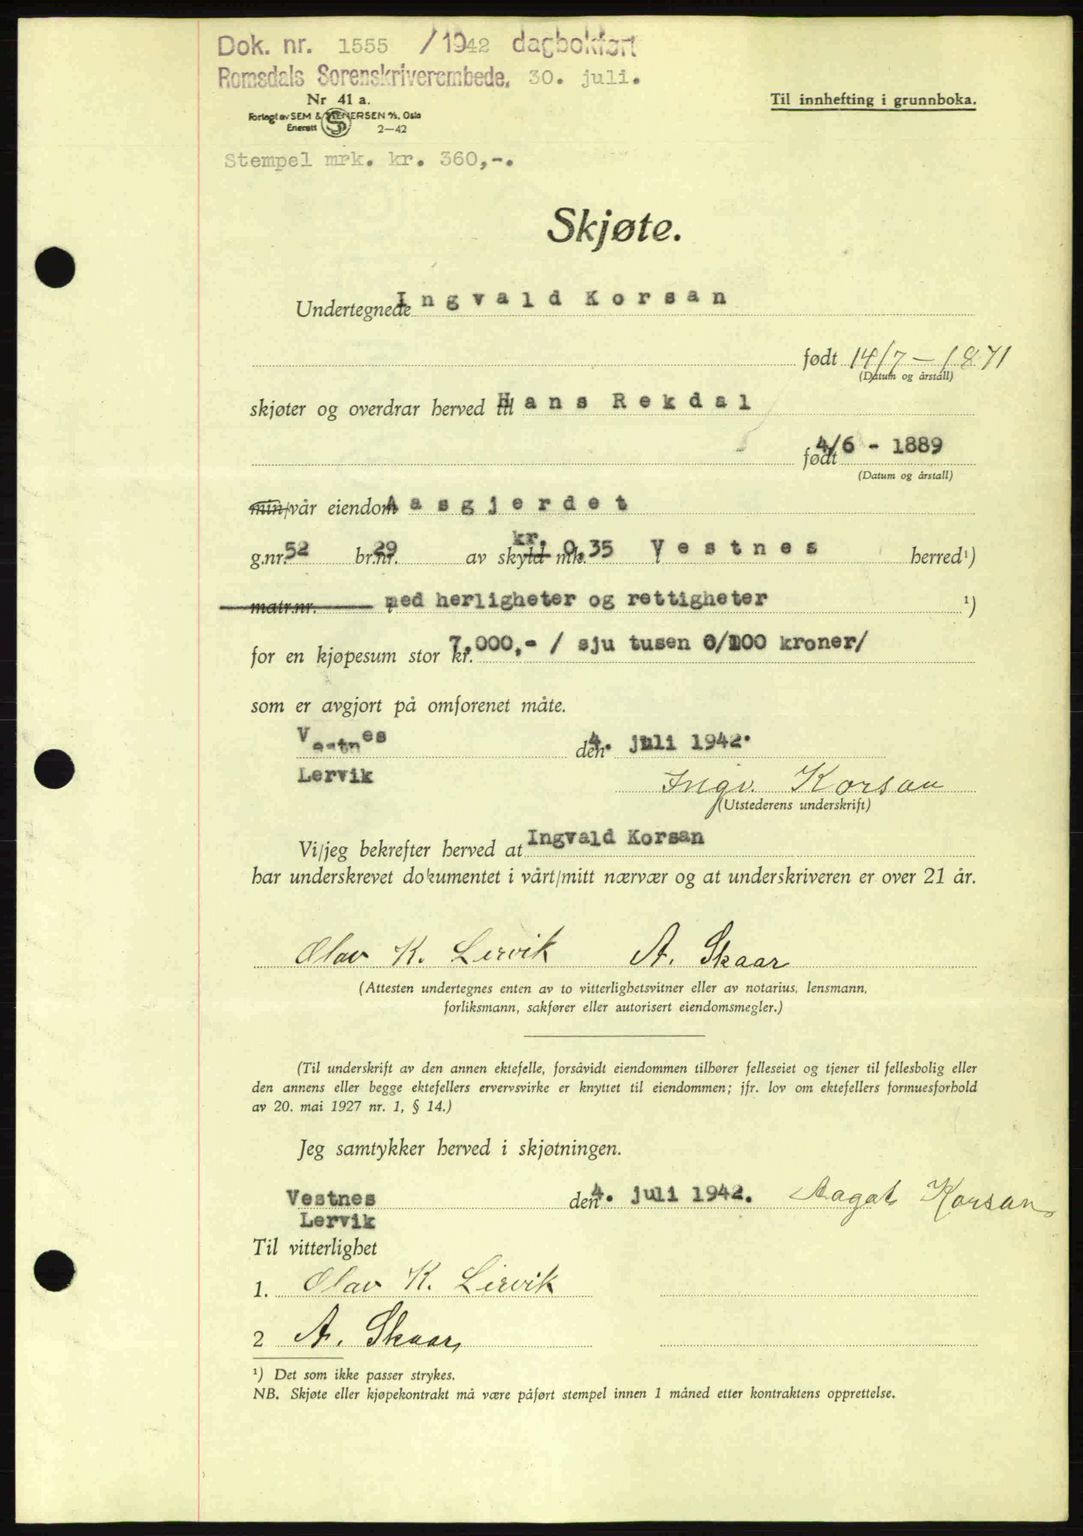 Dok. nr. 1555 /1942 dagbokført
Romsdals Sorenskriverembede, 30. juli.
Nr 41 a.
Til innhefting i grunnboka.
Forlagt av SEM & STENERSEN A/S, Oslo
Enerett 2—42
Stempel mrk. kr. 360,-.
Skjøte.
Undertegnede Ingvald Korsan
født 14/7 - 1871
(Datum og årstall)
skjøter og overdrar herved til Hans Rekdal
født 4/6 - 1889
(Datum og årstall)
min/vår eiendom Aasgjerdet
g.nr. 52 br.nr. 29 av skyld mk. kr. 0,35 Vestnes herred¹)
matr.nr. med herligheter og rettigheter ¹)
for en kjøpesum stor kr. 7.000,- / sju tusen 0/100 kroner/
som er avgjort på omforenet måte.
Vestnes den 4. juli 1942.
Lervik Ingv. Korsan
(Utstederens underskrift)
Vi/jeg bekrefter herved at Ingvald Korsan
har underskrevet dokumentet i vårt/mitt nærvær og at underskriveren er over 21 år.
Olav K. Lervik A. Skaar
(Attesten undertegnes enten av to vitterlighetsvitner eller av notarius, lensmann,
forliksmann, sakfører eller autorisert eiendomsmegler.)
(Til underskrift av den annen ektefelle, forsåvidt eiendommen tilhører felleseiet og tjener til fellesbolig eller
den annens eller begge ektefellers ervervsvirke er knyttet til eiendommen; jfr. lov om ektefellers formuesforhold
av 20. mai 1927 nr. 1, § 14.)
Jeg samtykker herved i skjøtningen.
Vestnes den 4. juli 1942. Aagot Korsan
Lervik
Til vitterlighet
1. Olav K. Lervik
2 A. Skaar
¹) Det som ikke passer strykes.
NB. Skjøte eller kjøpekontrakt må være påført stempel innen 1 måned etter kontraktens opprettelse.